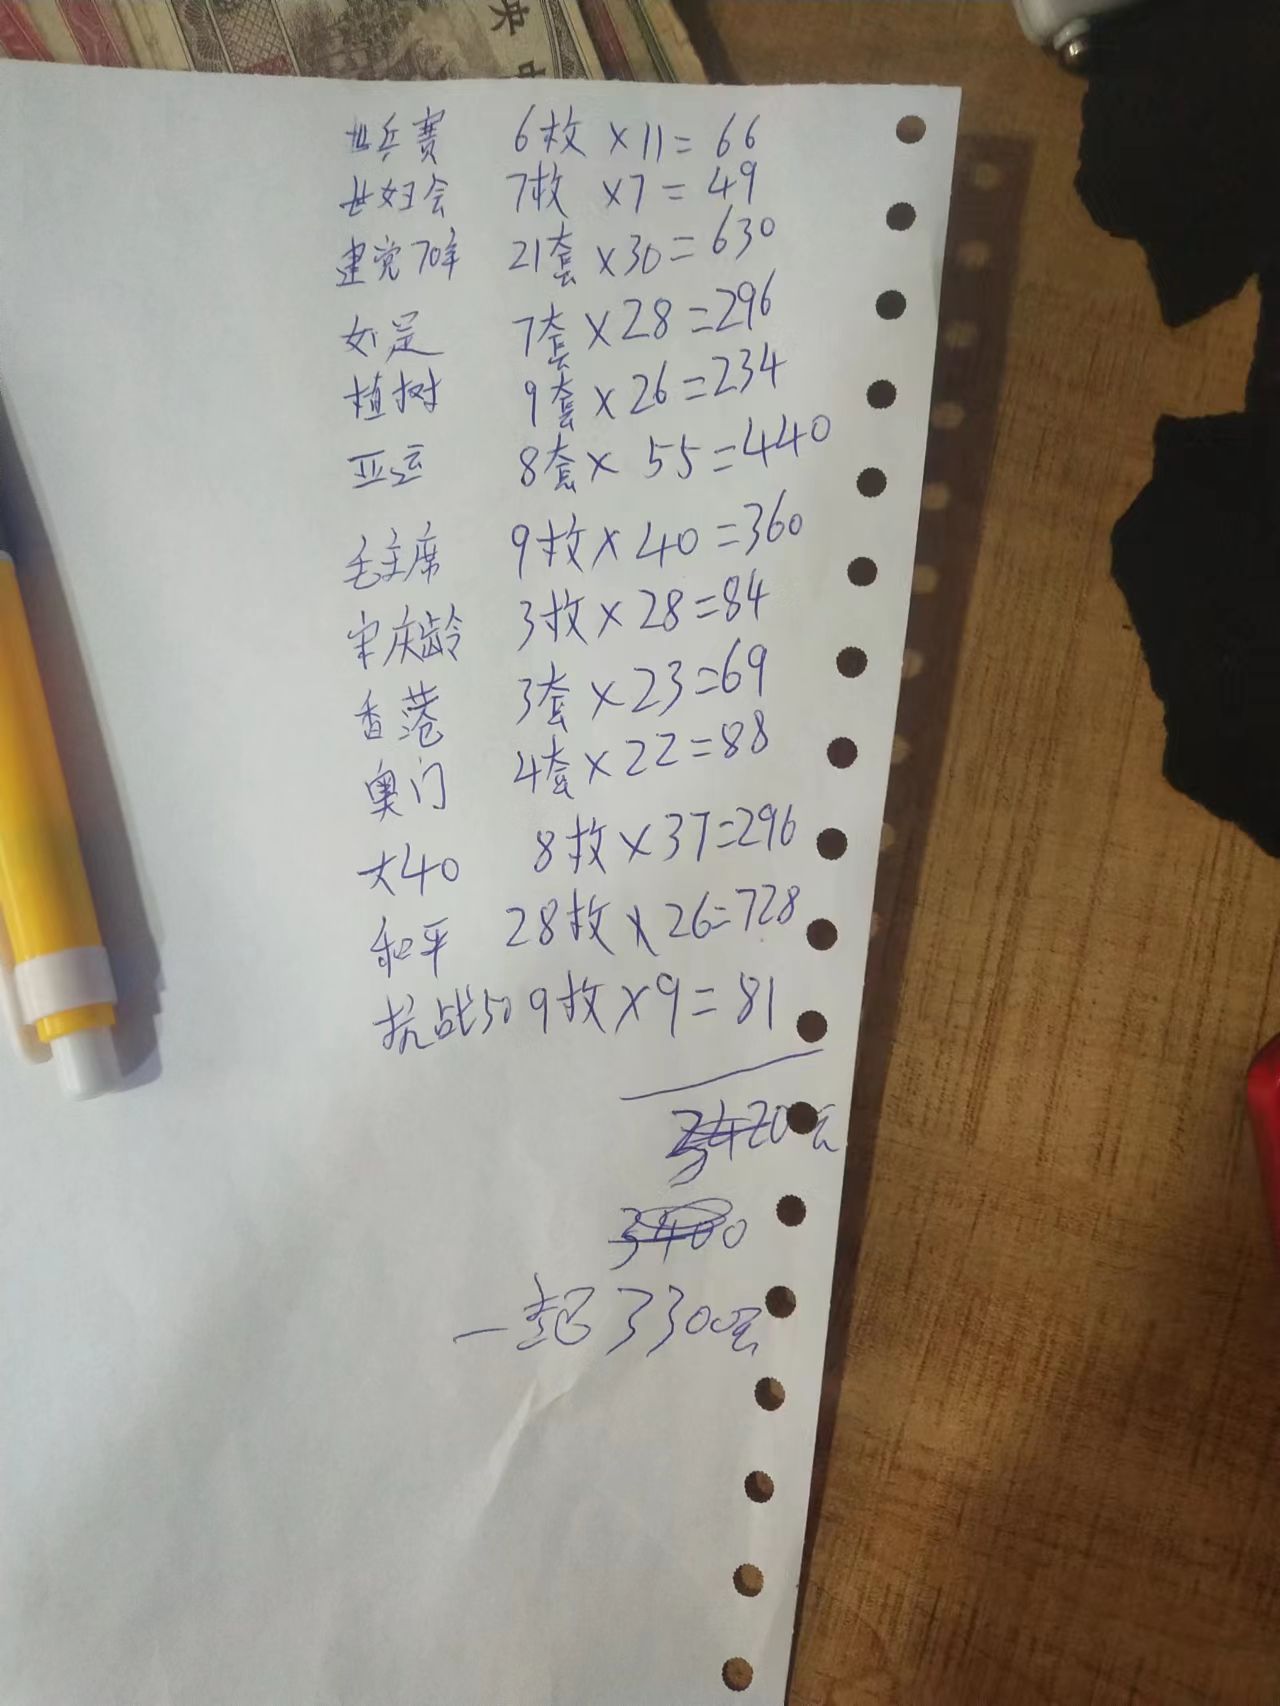 央 中
世乒赛 6枚 ×11=66
世妇会 7枚 ×7=49
建党70年 21套×30=630
女足 7套×28=296
植树 9套×26=234
亚运 8套× 55=440
毛主席 9枚×40=360
宋庆龄 3枚×28=84
香港 3套×23=69
奥门 4套×22=88
大40 8枚×37=296
和平 28枚×26=728
抗战50 9枚×9=81
3400
一起3300元